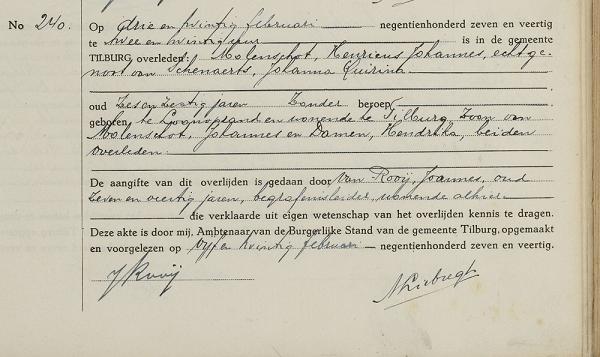 No 240.
Op drie en twintig februari negentienhonderd zeven en veertig
te twee en twintig uur is in de gemeente
TILBURG, overleden: Molenschot, Henricus Johannes, echtge-
noot van Schenaerts, Johanna Quirina
oud zes en zestig jaren Zonder beroep,
geboren te Loonopzand en wonende te Tilburg, Zoon van
Molenschot, Johannes en Damen, Hendrika, beiden
overleden.
De aangifte van dit overlijden is gedaan door Van Rooij, Joannes, oud
zeven en veertig jaren, begrafenisleider, wonende alhier
die verklaarde uit eigen wetenschap van het overlijden kennis te dragen.
Deze akte is door mij, Ambtenaar van de Burgerlijke Stand van de gemeente Tilburg, opgemaakt
en voorgelezen op vijf en twintig februari negentienhonderd zeven en veertig.
J v Rooij